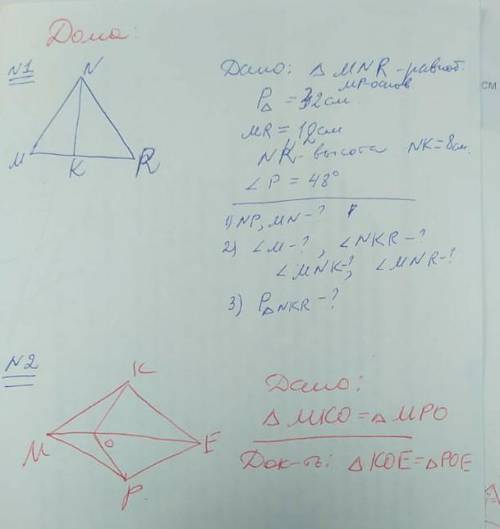 Дома:
N1
N
M
K
R
Дано: Δ MNR - равноб.
MP основ
P△ = 32см
MR = 12см
NK - высота NK = 8см.
∠P = 48°
1) NP, MN - ?
2) ∠M - ?, ∠NKR - ?
∠MNK - ?, ∠MNR - ?
3) P△NKR - ?
N2
K
M
O
E
P.
Дано:
Δ MKO = Δ MPO
Док-ть: Δ KOE = Δ POE
см